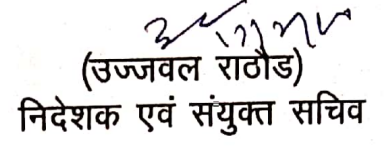 (उज्जवल राठौड)
निदेशक एवं संयुक्त सचिव